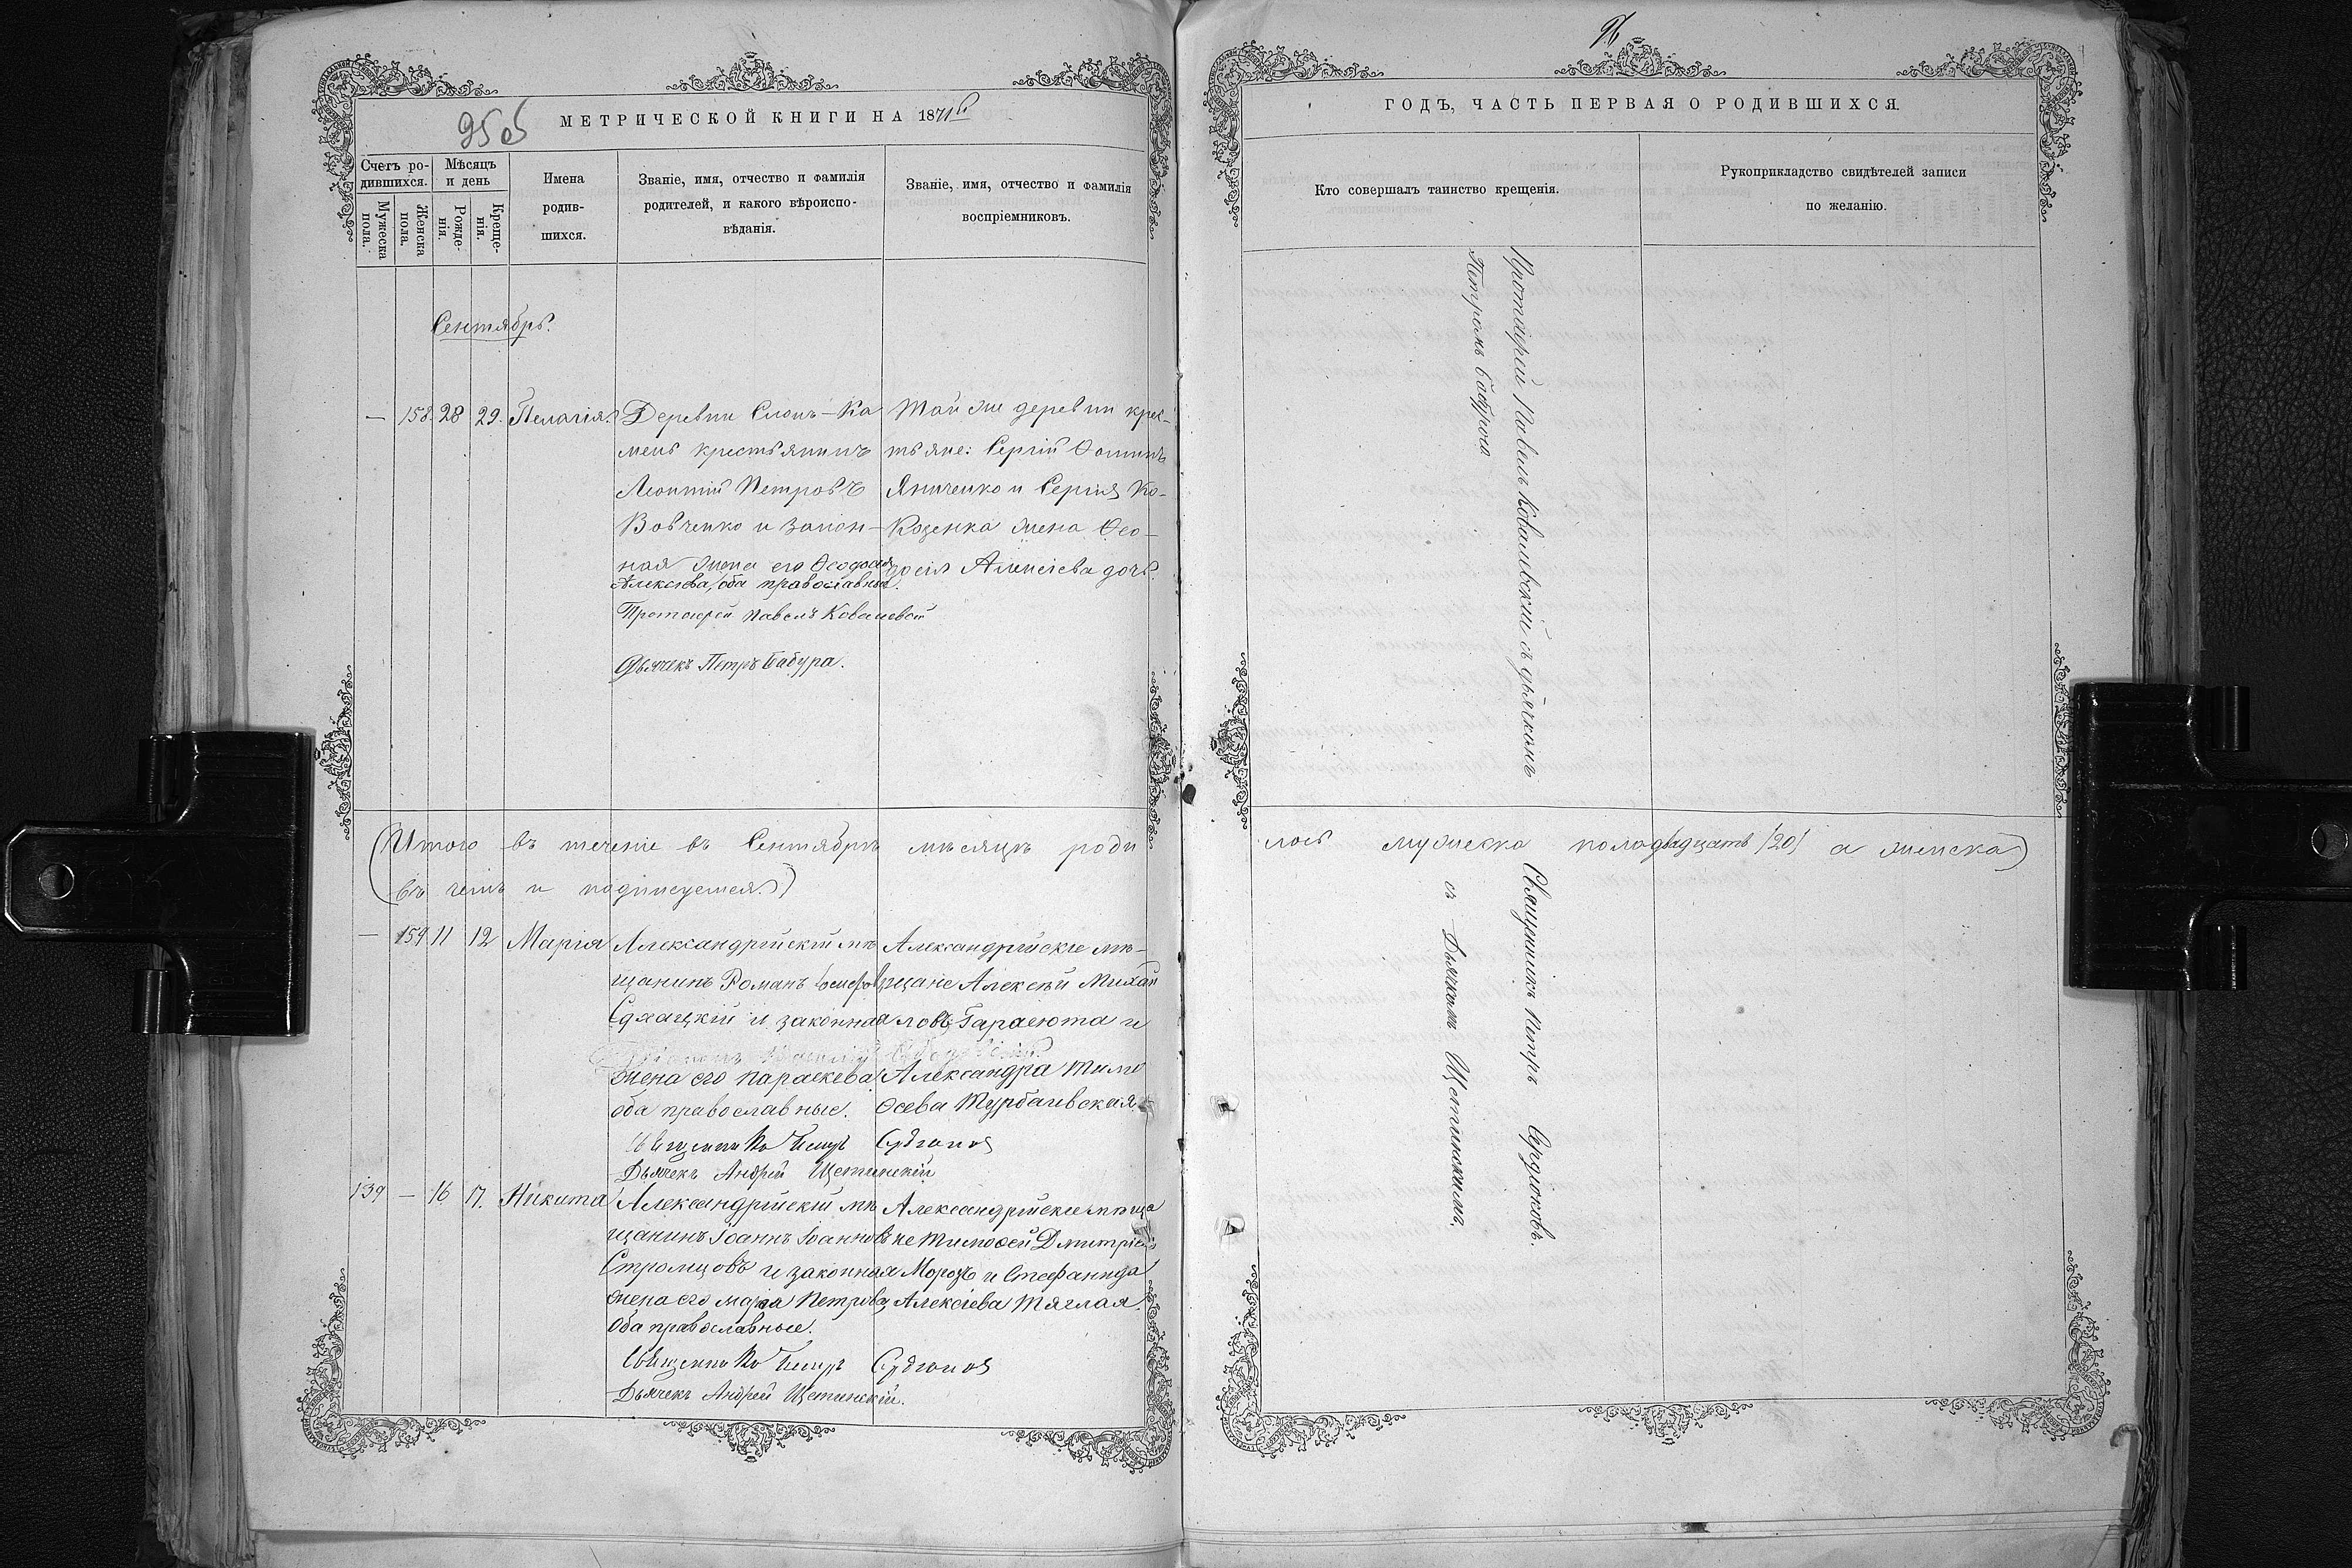 95об
МЕТРИЧЕСКОЙ КНИГИ НА 1871й
Счетъ ро-
дившихся.
Мужеска
пола.
Женска
пола.
Мѣсяцъ
и день
Рожде-
нія.
Креще-
нія.
Имена
родив-
шихся.
Званіе, имя, отчество и фамилія
родителей, и какого вѣроиспо-
вѣданія.
Званіе, имя, отчество и фамилія
воспріемниковъ.
Сентябрь.
— 158. 28 29. Пелагія.
Деревни Слонъ-Ка
мень крестьянинъ
Леонтій Петровъ
Вовченко и закон-
ная жена его Ѳеодосія
Алексѣева, оба православные.
Протоіерей Павелъ Ковалевскій
Дьячекъ Петръ Бабура.
Той же деревни крес-
тьяне: Сергій Ѳоминъ
Яниченко и Сергія Ко-
Козенка жена Ѳео-
досія Алексіева дочь.
(Итого въ теченіе въ Сентябрѣ мѣсяцѣ роди
(въ чемъ и подписуемся.)
— 159 11 12 Марія
Александрійскій мѣ
щанинъ Романъ
и законная
жена его Параскева
оба православные.
Священникъ Петръ Сердюковъ
Дьячекъ Андрей Щетинскій
Александрійскіе мѣ-
щане Алексѣй Михай
ловъ Гарасюта и
Александра Тимо
ѳеева Турбаевская
139 — 16 17. Никита
Александрійскій мѣ
щанинъ Іоаннъ Іоанновъ
Стромцовъ и законная
жена его Марія Петрова
Оба православные.
Священникъ Петръ Сердюковъ
Дьячекъ Андрей Щетинскій.
Александрійскіе мѣща
не Тимоѳей Дмитріевъ
Морозъ и Стефанида
Алексіева Тяглая.
96
ГОДЪ, ЧАСТЬ ПЕРВАЯ О РОДИВШИХСЯ.
Кто совершалъ таинство крещенія.
Рукоприкладство свидѣтелей записи
по желанію.
Протоіерей Павелъ Ковалевскій съ дьячкомъ
Петромъ Бабурою
лось мужеска пола двадцать /20/ а женска)
Священникъ Петръ Сердюковъ.
съ Дьячкомъ Щетинскимъ.